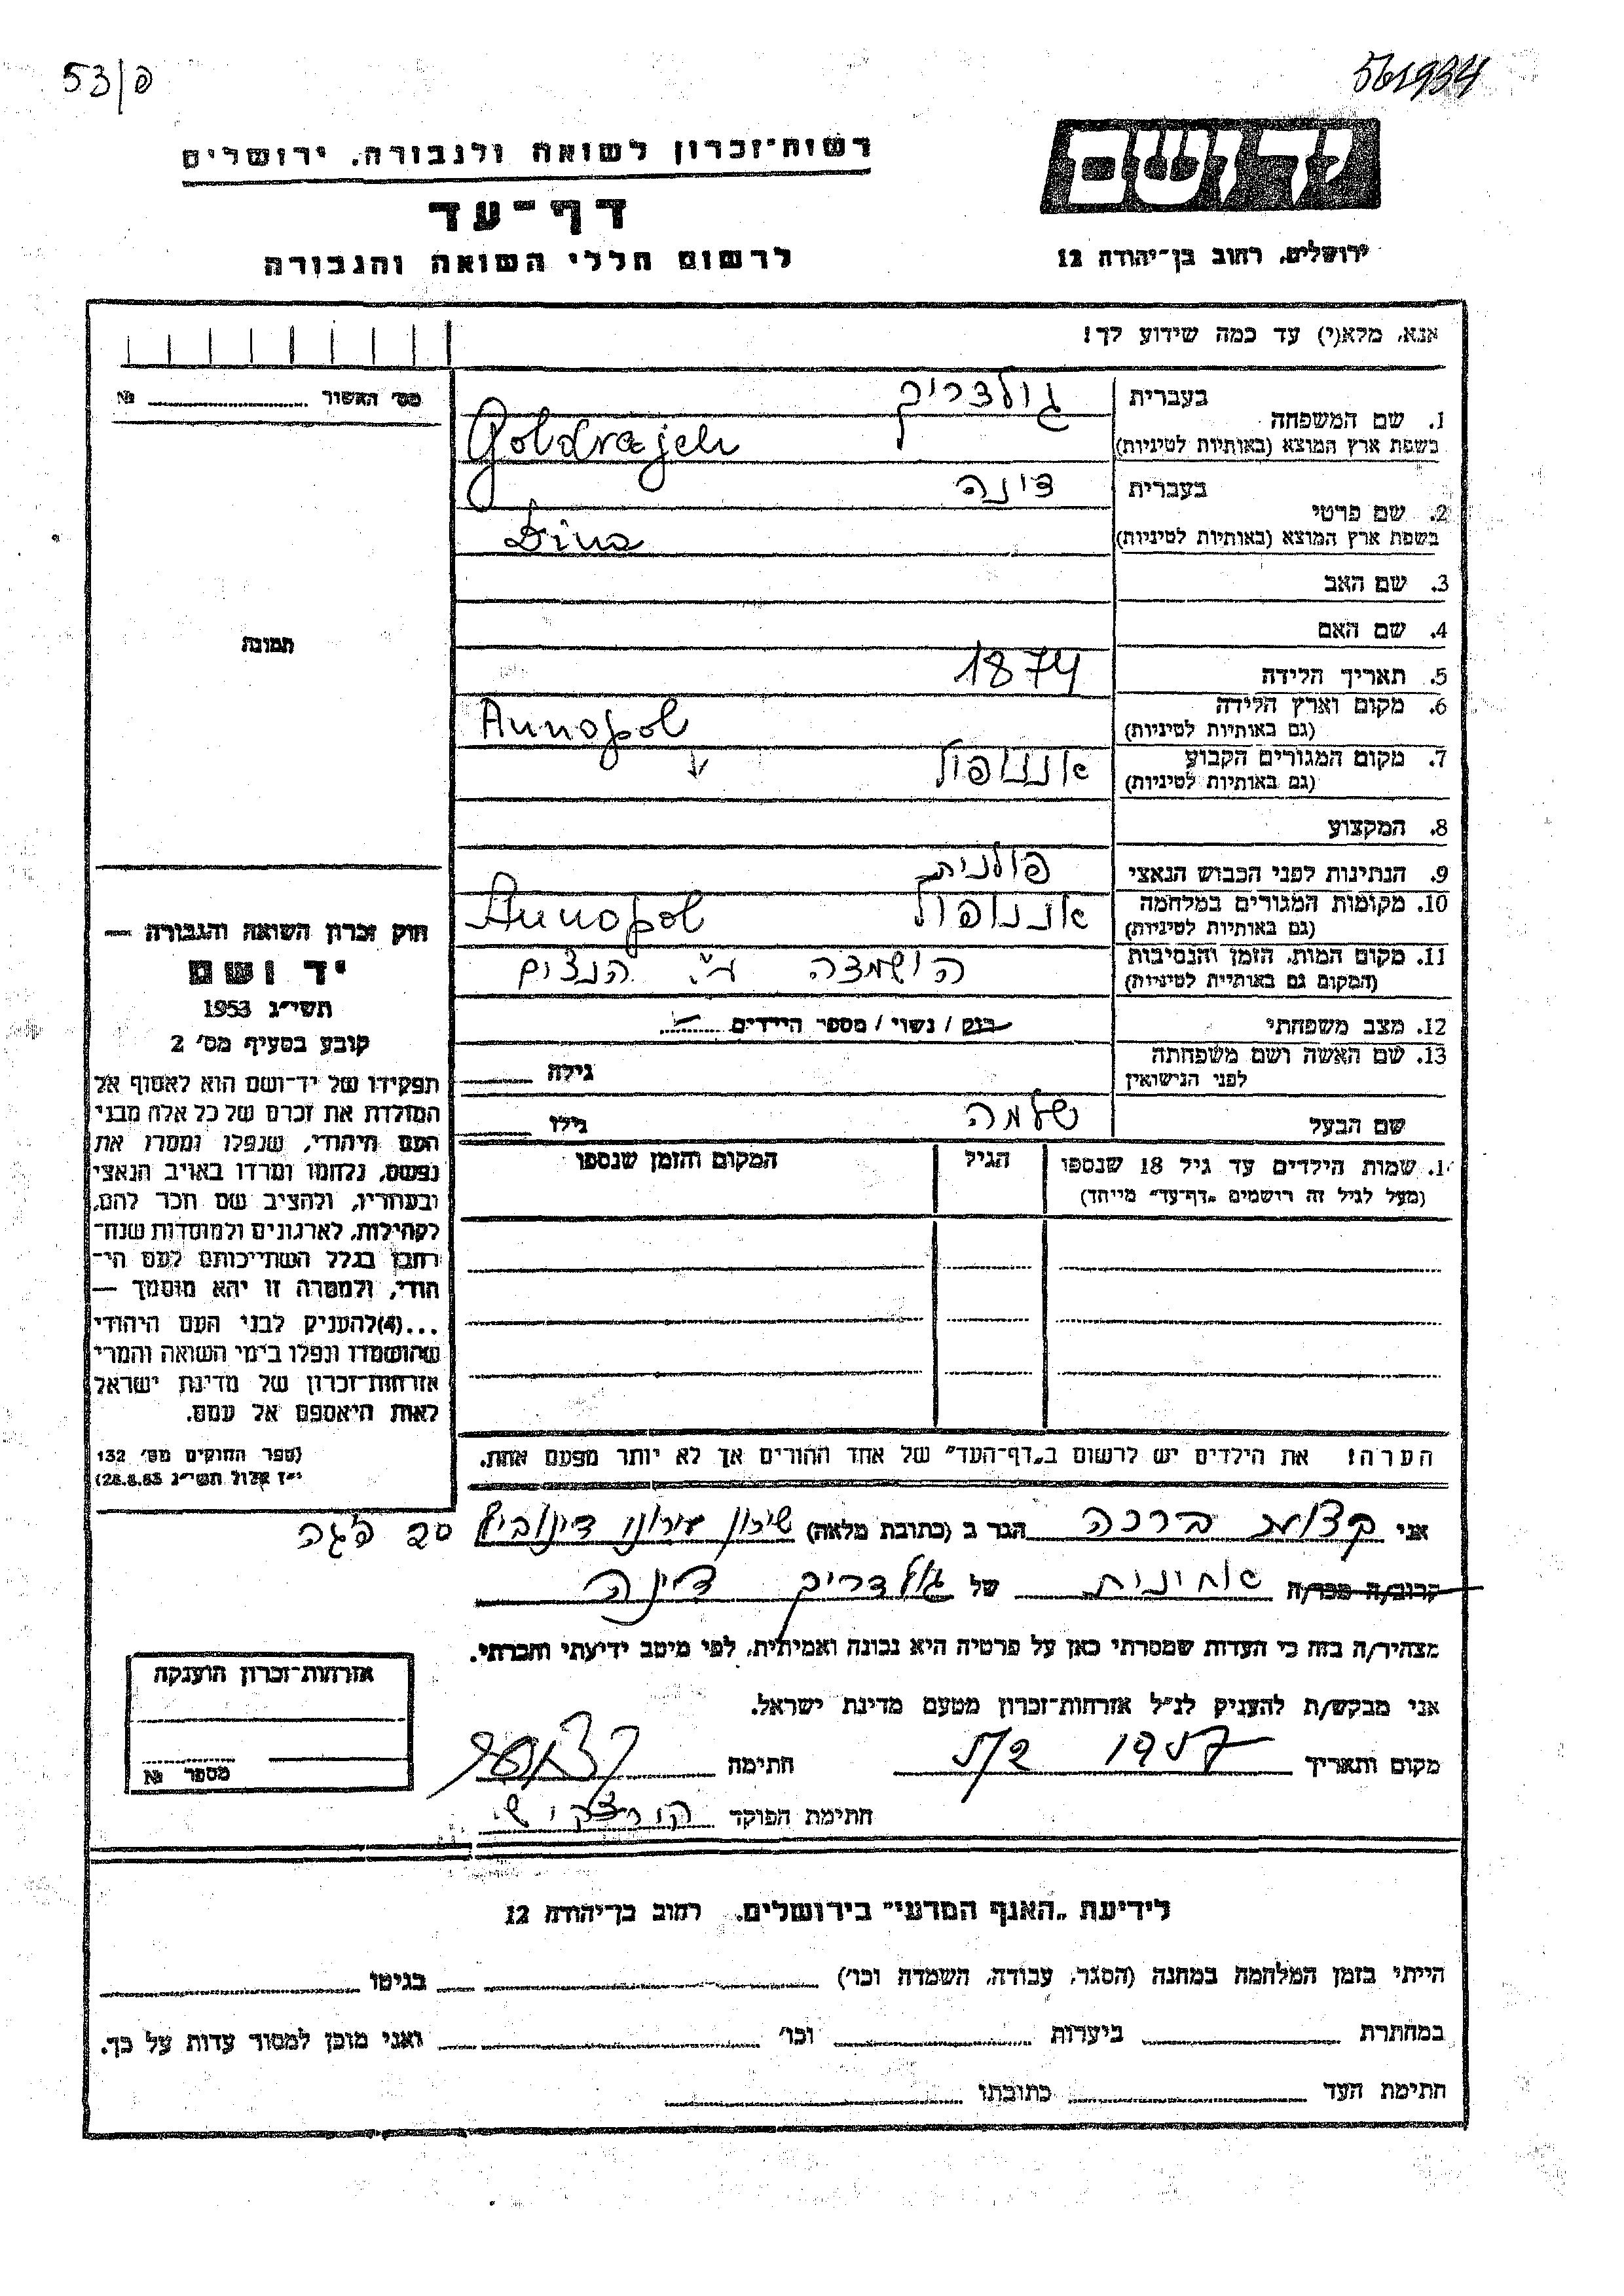 53/פ
561934
יד ושם
ירושלים, רחוב בן־יהודה 12
רשות־זכרון לשואה ולגבורה, ירושלים
דף־עד
לרשום חללי השואה והגבורה
אנא, מלא(י) עד כמה שידוע לך!
מס׳ האשור № 
1. שם המשפחה
בעברית גולדריך
בשפת ארץ המוצא (באותיות לטיניות) Goldrajch
2. שם פרטי
בעברית דינה
בשפת ארץ המוצא (באותיות לטיניות) Dina
3. שם האב
4. שם האם
5. תאריך הלידה 1874
6. מקום וארץ הלידה Annopol
(גם באותיות לטיניות)
7. מקום המגורים הקבוע אננופול
(גם באותיות לטיניות)
8. המקצוע
9. הנתינות לפני הכבוש הנאצי פולנית
10. מקומות המגורים במלחמה אננופול Annopol
(גם באותיות לטיניות)
11. מקום המות, הזמן והנסיבות הושמדה ע"י הנצים
(המקום גם באותיות לטיניות)
12. מצב משפחתי רווק / נשוי / מספר הילדים
13. שם האשה ושם משפחתה
לפני הנישואין גילה
שם הבעל שלמה גילו
1. שמות הילדים עד גיל 18 שנספו הגיל המקום והזמן שנספו
(מעל לגיל זה רושמים „דף־עד" מייחד)
הערה! את הילדים יש לרשום ב„דף־העד" של אחד ההורים אך לא יותר מפעם אחת.
תמונה
חוק זכרון השואה והגבורה —
יד ושם
תשי״ג 1953
קובע בסעיף מס׳ 2
תפקידו של יד־ושם הוא לאסוף אל
המולדת את זכרם של כל אלה מבני
העם היהודי, שנפלו ומסרו את
נפשם, נלחמו ומרדו באויב הנאצי
ובעוזריו, ולהציב שם וזכר להם,
לקהילות, לארגונים ולמוסדות שנח־
רבו בגלל השתייכותם לעם הי־
הודי, ולמטרה זו יהא מוסמך —
...(4) להעניק לבני העם היהודי
שהושמדו ונפלו בימי השואה והמרי
אזרחות־זכרון של מדינת ישראל
לאות היאספם אל עמם.
(ספר החוקים מס׳ 132
י״ז אלול תשי״ג 28.8.53)
אני ברכה הגר ב (כתובת מלאה) שיכון עירוני
קרוב/ה מכר/ה אחינית של גולדריך דינה
מצהיר/ה בזה כי העדות שמסרתי כאן על פרטיה היא נכונה ואמיתית, לפי מיטב ידיעתי והכרתי.
אני מבקש/ת להעניק לנ״ל אזרחות־זכרון מטעם מדינת ישראל.
מקום ותאריך 1957 חתימה
חתימת הפוקד
אזרחות־זכרון הוענקה
מספר №
לידיעת „האגף המדעי" בירושלים, רחוב בן־יהודה 12
הייתי בזמן המלחמה במחנה (הסגר, עבודה, השמדה וכו׳) בגיטו
במחתרת ביערות וכו׳ ואני מוכן למסור עדות על כך.
חתימת העד כתובתו